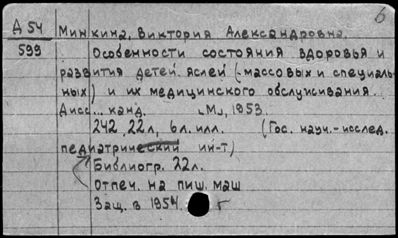 б
Д 54 Минкина, Виктория Александровна.
599 Особенности состояния здоровья и
развития детей яслей (массовых и специаль-
ных) и их медицинского обслуживания...
Дисс... канд. М., 1953.
242, 22л, 6л. илл. (Гос. науч.-исслед.
педиатрический ин-т)
Библиогр. 22л.
Отпеч. на пиш. маш
Защ. в 1954.